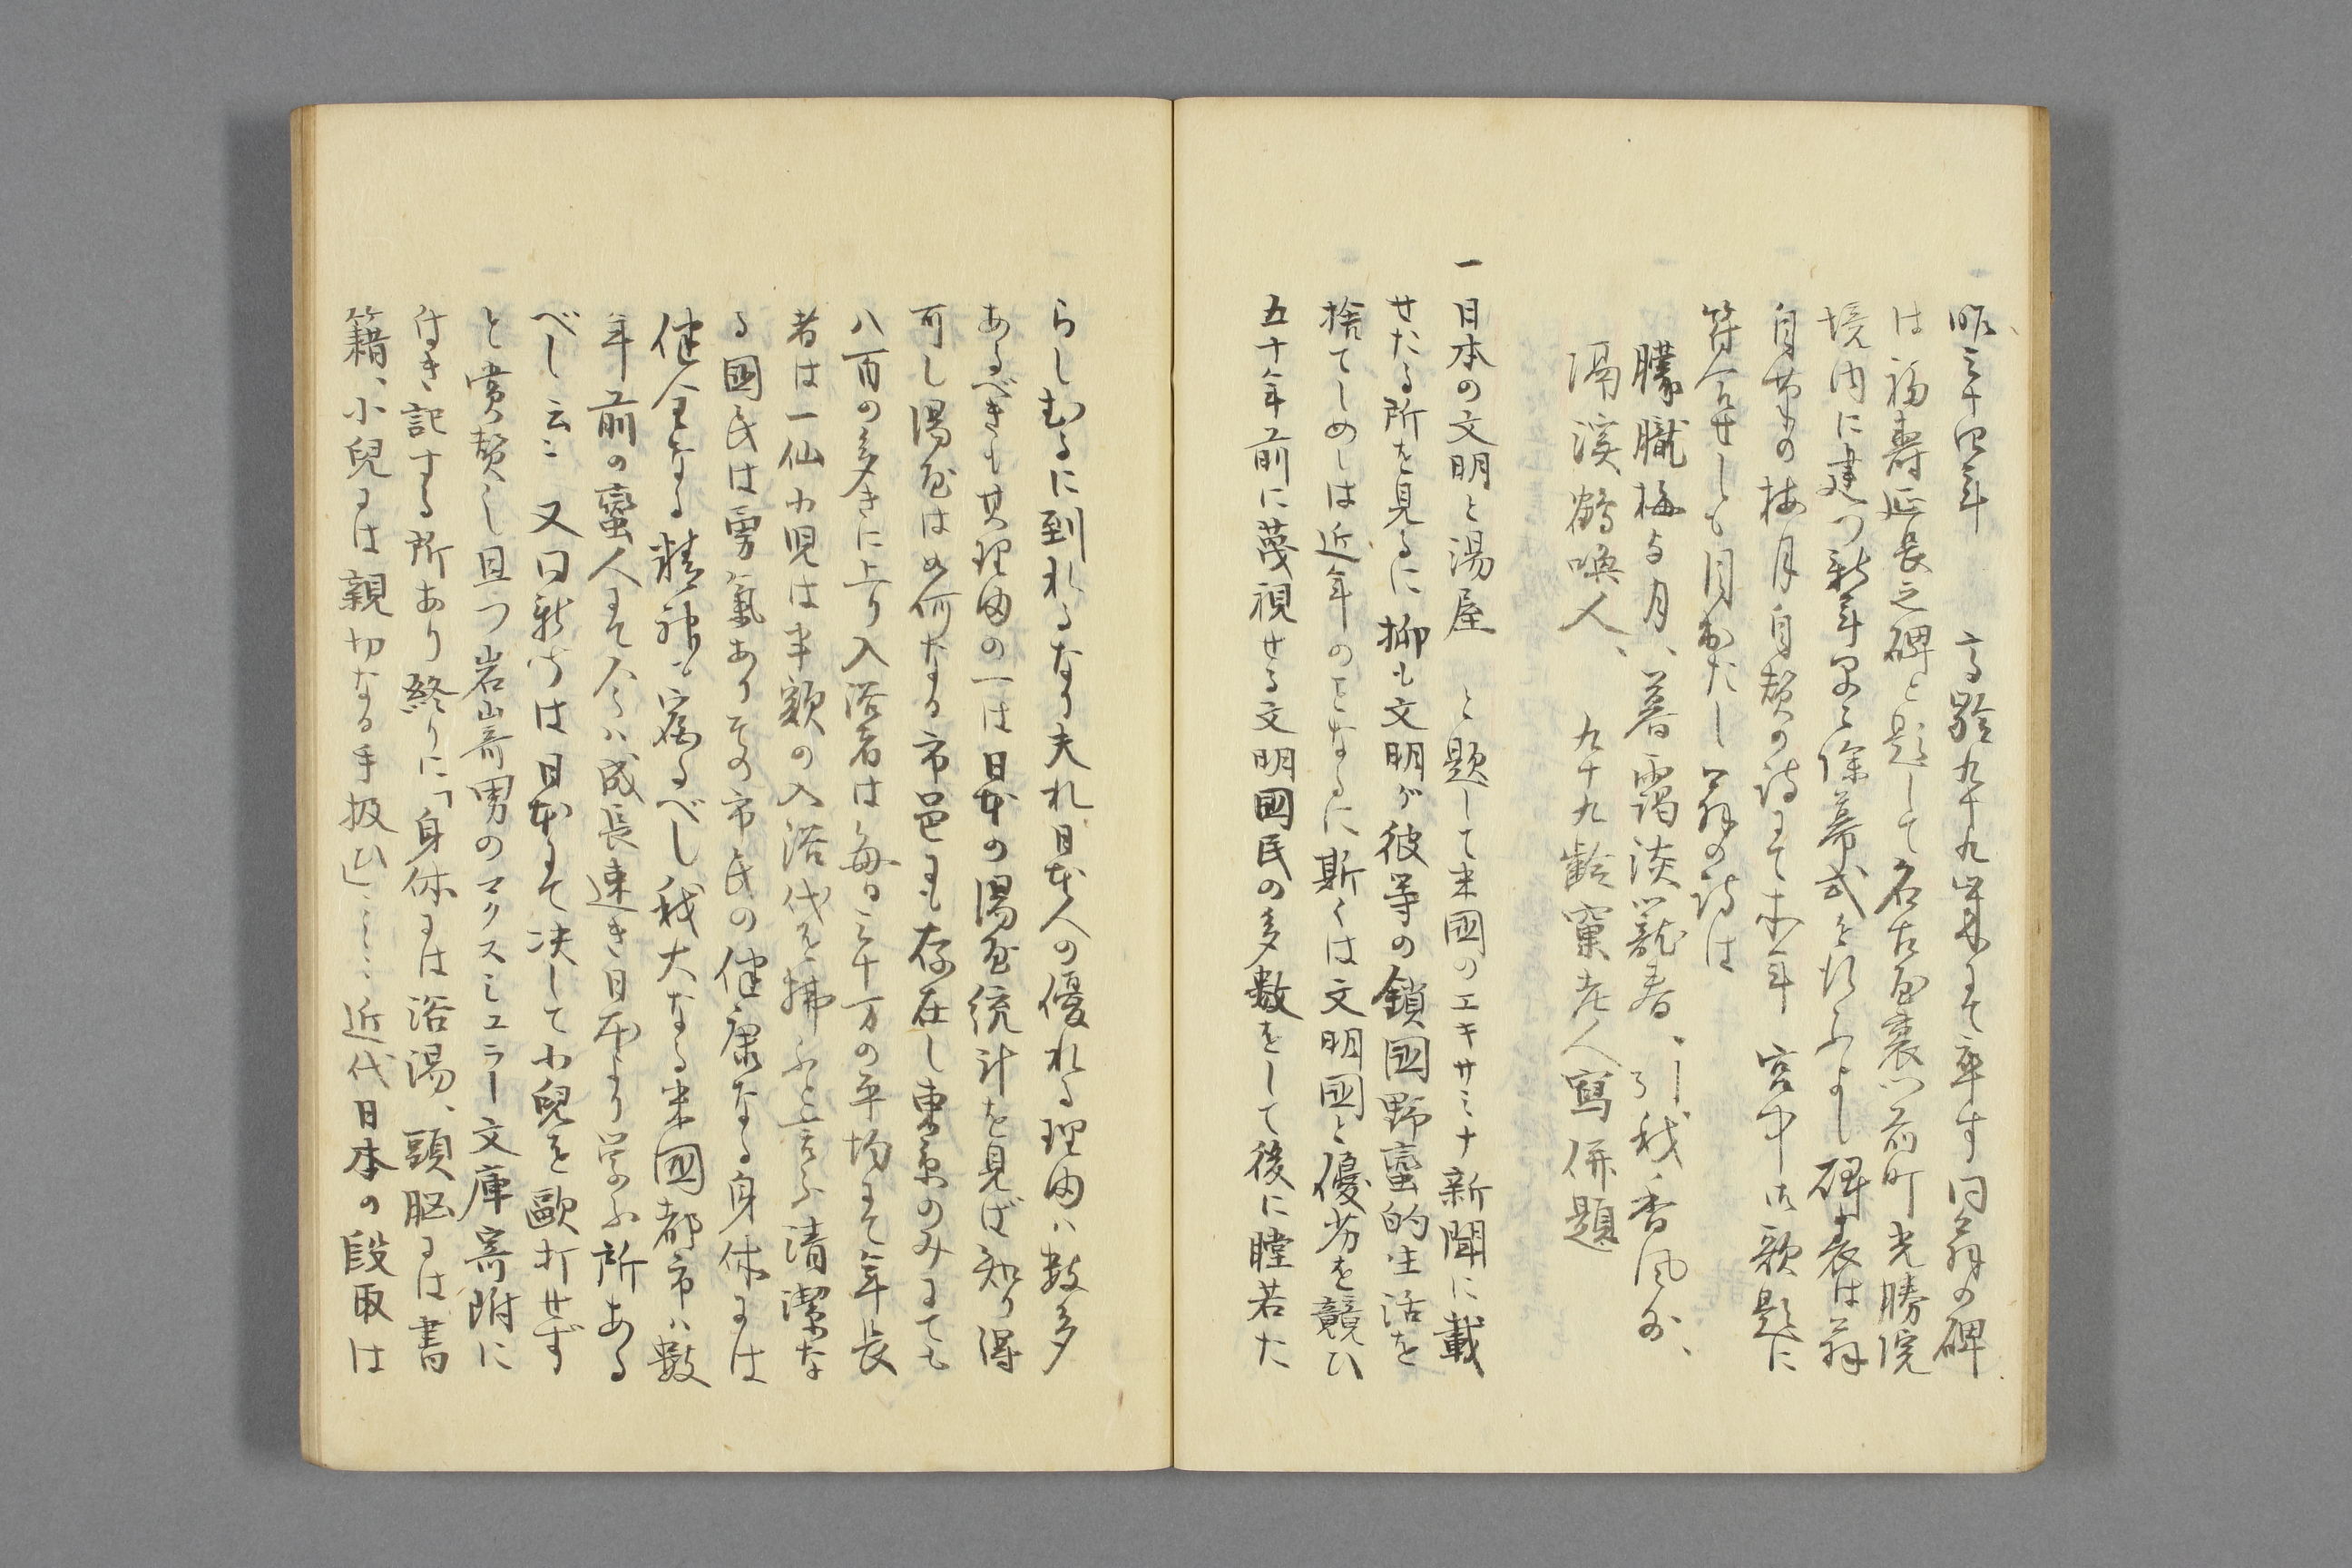 昨三十四年　高齢九十九歳にて卒す同翁の碑
は福寿延長之碑と題して名古屋裏門前町光勝院
境内に建つ新年早々除幕式を行ふよし碑表は翁
自筆の梅月自賛の詩にて本年　宮中御歌題に
符合せしも目出たし翁の詩は
朦朧梅与月、暮靄淡籠春、引我香風外、
隔渓鶴喚人、　九十九齢窠老人寫併題
一日本の文明と湯屋　と題して米國のエキサミナ新聞に載
せたる所を見るに抑も文明が彼等の鎖國野蛮的生活を
捨てしめしは近年のことなるに斯くは文明國と優劣を競ひ
五十年前に蔑視せる文明國民の多数をして後に瞠若た
らしむるに到れるなり夫れ日本人の優れる理由ハ数多
あるべきも其理由の一は日本の湯屋統計を見ば知り得
可し湯屋は如何なる市邑にも存在し東京のみにても
八百の多きに上り入浴者は毎日三十万の平均にて年長
者は一仙小児は半額の入浴代を拂ふと言ふ清潔な
る國民は勇氣ありその市民の健康なる身体には
健全なる精神も寓るべし我大なる米國都市ハ数
年前の蛮人にて今ハ成長速き日本より学ふ所ある
べし云々　又曰新聞は日本にて决して小兒を歐打せず
と賞賛し且つ岩崎男のマクスミュラー文庫寄附に
付き記する所あり終りに「身体には浴湯、頭脳には書
籍、小兒には親切なる手扱ひ」……近代日本の段取は